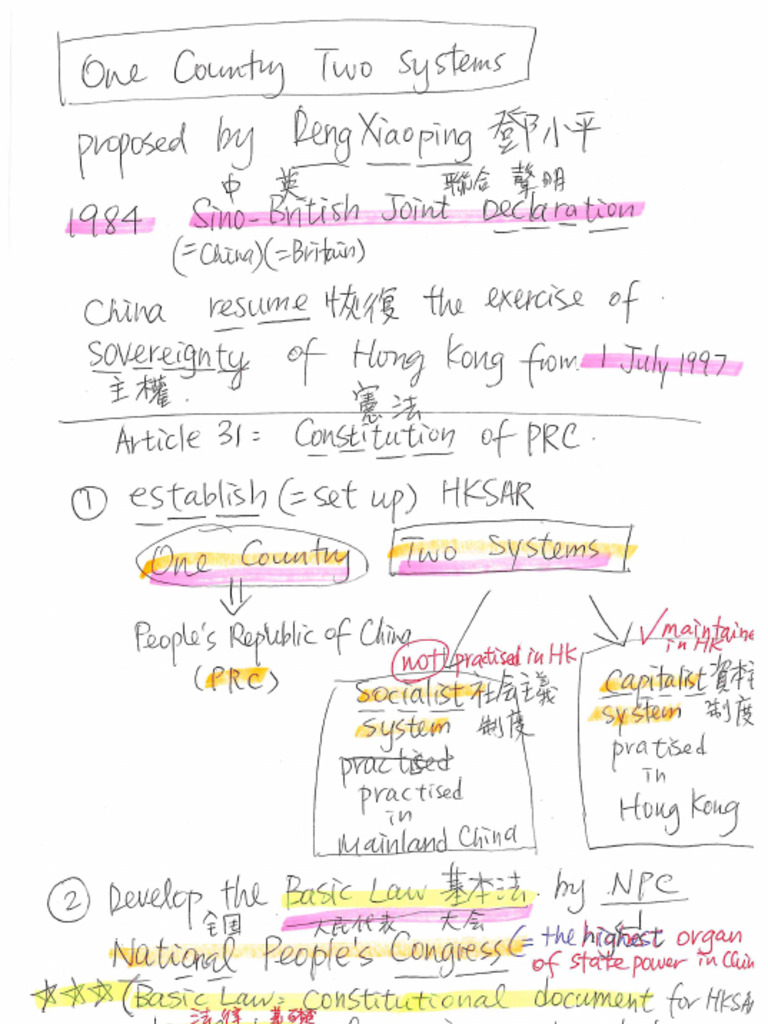 One Country Two Systems
proposed by Deng Xiaoping 鄧小平
中 英 聯合 聲明
1984 Sino-British Joint Declaration
(=China)(=Britain)
China resume 恢復 the exercise of
sovereignty of Hong Kong from 1 July 1997
主權
憲法
Article 31: Constitution of PRC.
① establish (= set up) HKSAR
One Country Two Systems
People's Republic of China
(PRC)
not practised in HK
socialist 社会主義
system 制度
practised
practised
in
Mainland China
✓ maintaine
in HK
capitalist 資本
system 制度
pratised
in
Hong Kong
② Develop the Basic Law 基本法 by NPC
全国 人民代表 大会
National People's Congress (= the highest organ
of state power in Chin
☆☆☆ (Basic Law: constitutional document for HKSA
法律 基礎